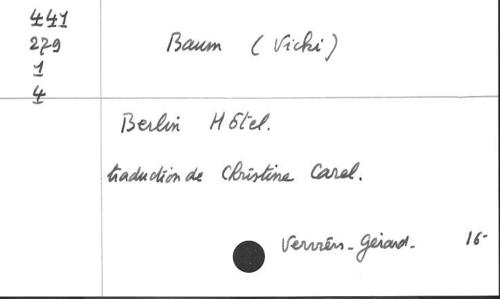 441
279
1
4
Baum (Vicki)
Berlin Hôtel.
traduction de Christine Carel.
Verviers-Gérard. 16-